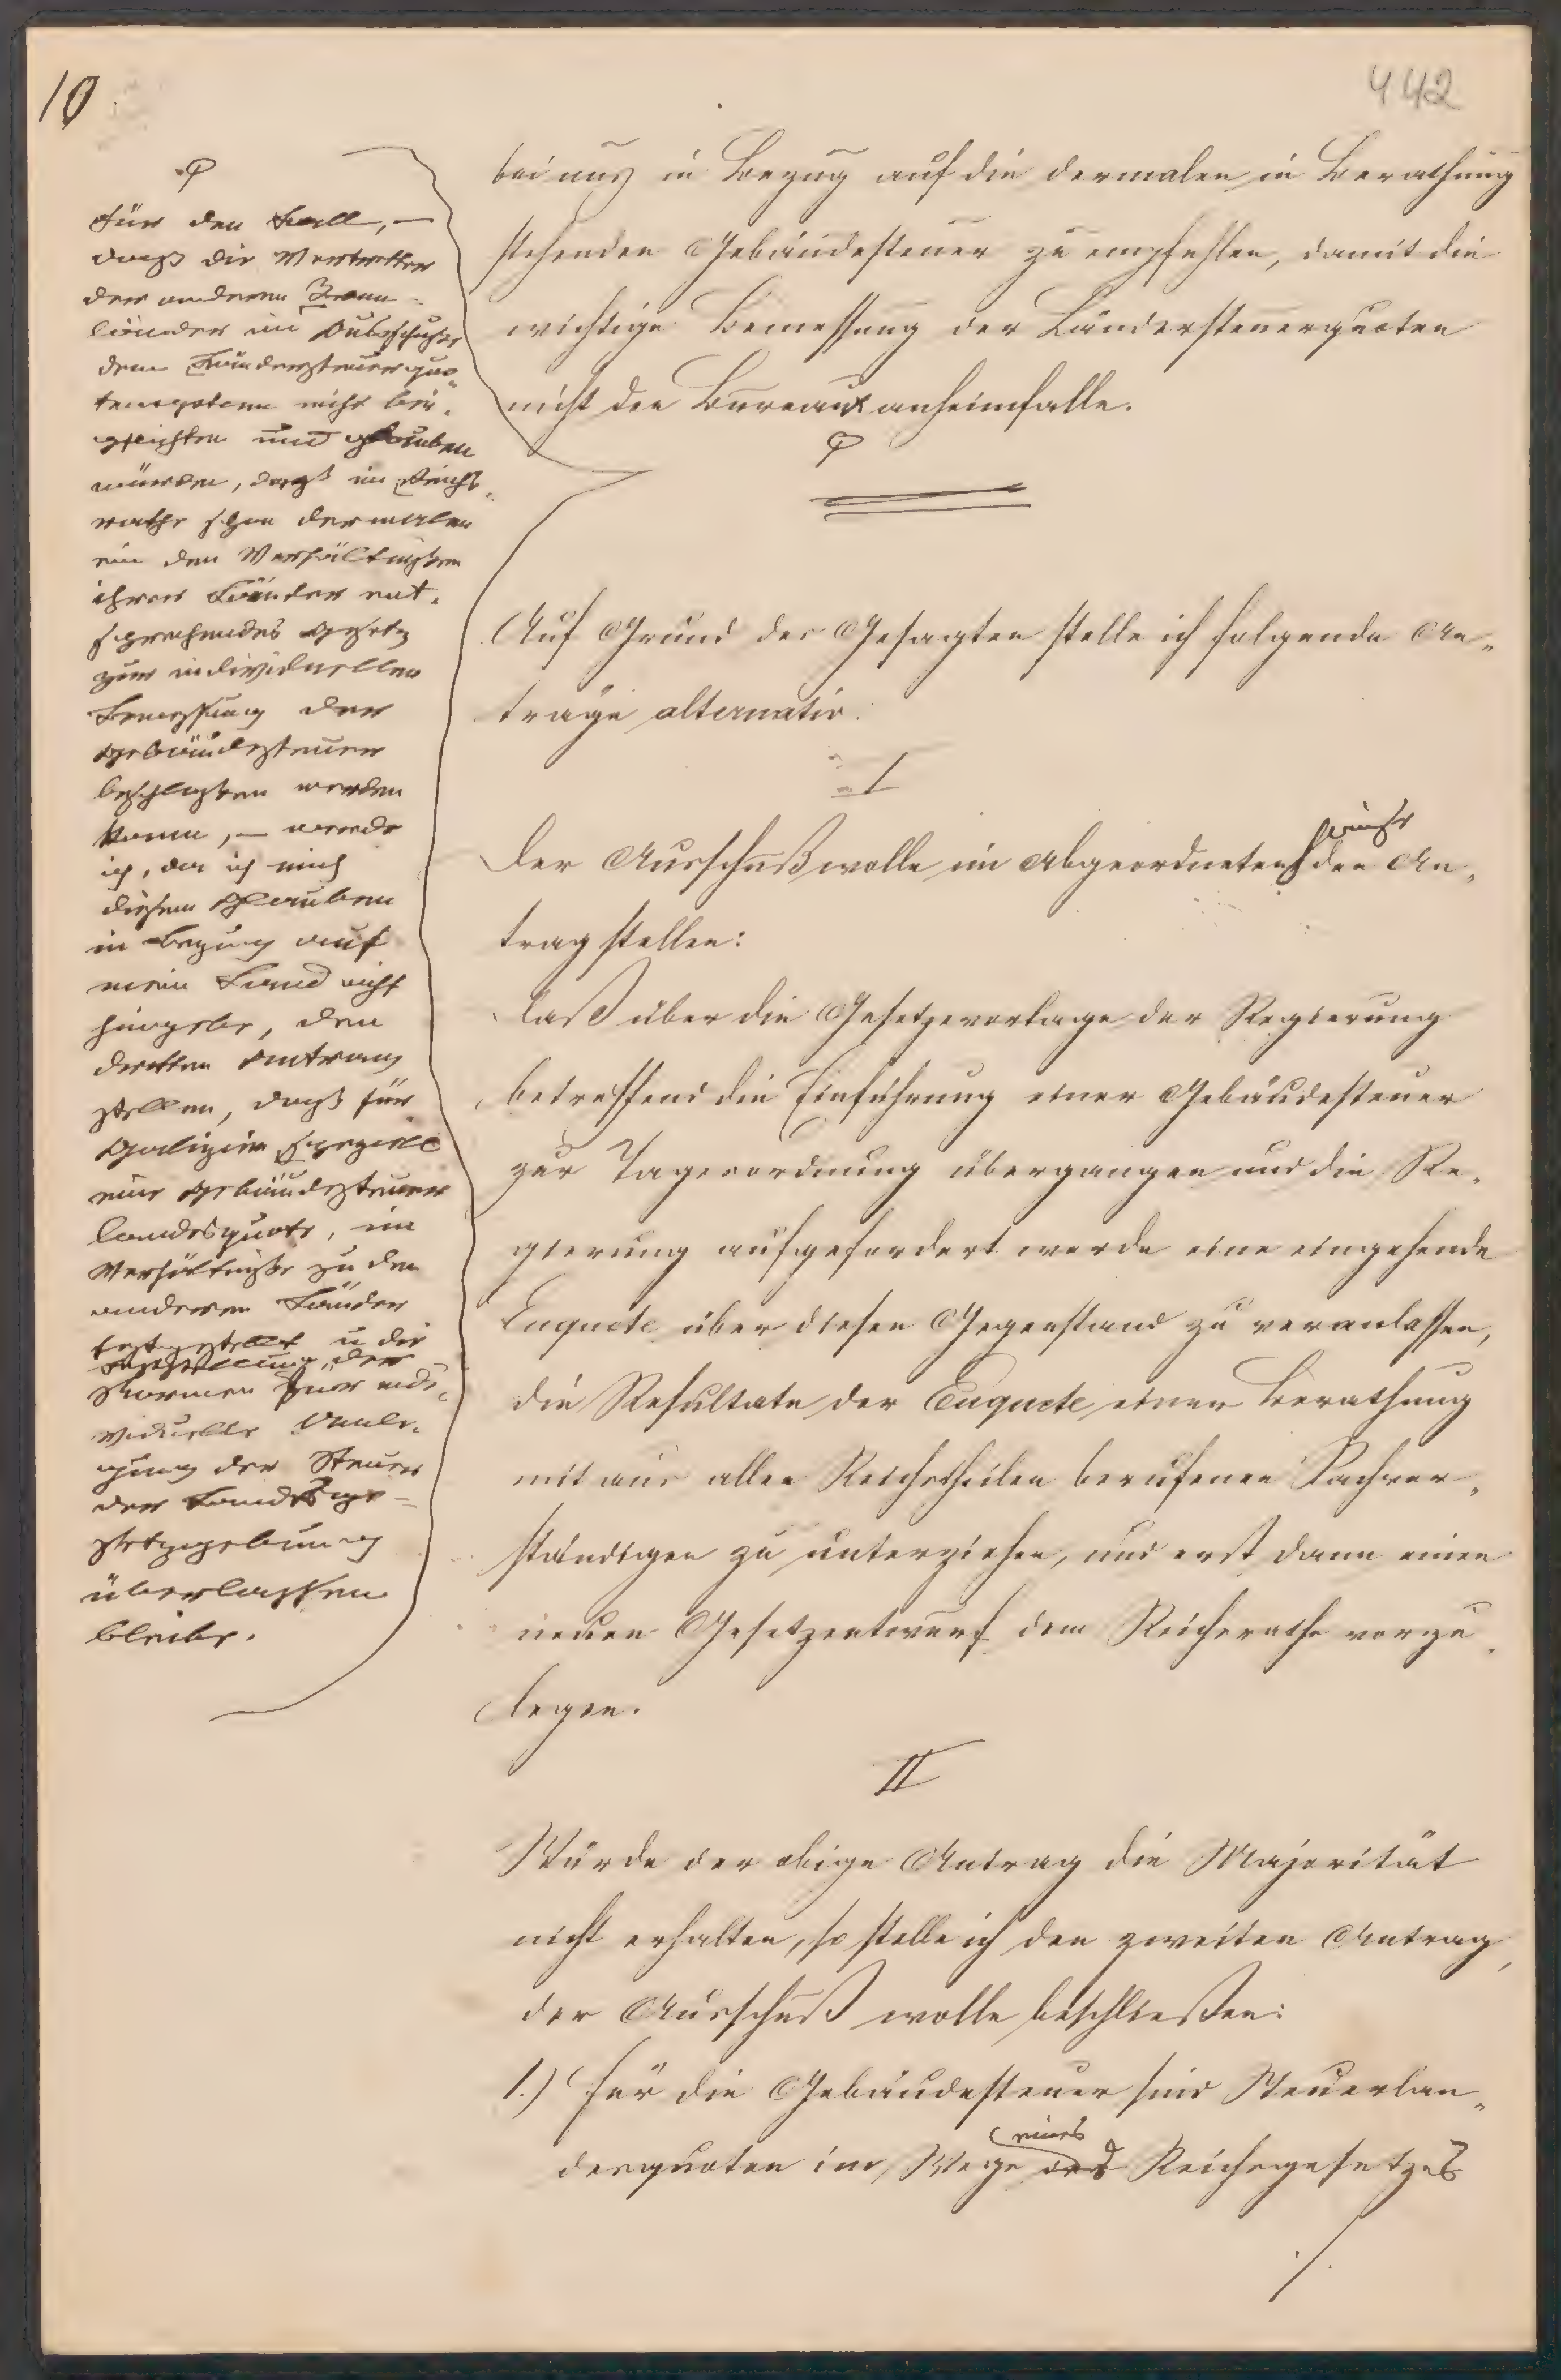 10
442
bei uns in Bezug auf die dermalen in Berathung
stehenden Gebäudesteuer zu empfehlen, damit die
wichtige Bemessung der Ländersteuerquoten
nicht den Bureaux anheimfalle.
für den Fall, –
daß die Vertretter
der anderen Kron-
länder im Subausschuße
dem Ländersteuerquo-
tensystem nicht bei-
pflichten und glauben
würden, daß im Reichs-
rathe schon dermalen
ein den Verhältnißen
ihrer Länder ent-
sprechendes Gesetz
zur individuellen
Bemessung der
Gebäudesteuer
beschlossen werden
kann, – werde
ich, da ich mich
diesem Glauben
in Bezug auf
mein Land nicht
hingebe, den
dritten Antrag
stellen, daß für
Galizien speziell
eine Gebäudesteuer
landesquote, im
Verhältniße zu den
anderen Länder
festgestellt u die
Feststellung der
Normen zur indi-
viduelle Umle-
gung der Steuer
der Landesge-
setzgebung
überlassen
bleibe.
Auf Grund des Gesagten stelle ich folgende An-
träge alternativ.
I
Der Ausschuß wolle im Abgeordneten hause den An-
trag stellen:
Daß über die Gesetzesvorlage der Regierung
betreffend die Einführung einer Gebäudesteuer
zur Tagesordnung übergangen und die Re-
gierung aufgefordert werde eine eingehende
Enquete über diesen Gegenstand zu veranlassen,
die Resultate der Enquete einer Berathung
mit aus allen Reichstheilen berufenen Sachver-
ständigen zu unterziehen, und erst dann einen
neuen Gesetzentwurf dem Reichsrathe vorzu-
legen.
II
Würde der obige Antrag die Majorität
nicht erhalten, so stelle ich den zweiten Antrag,
der Ausschuß wolle beschließen:
1.) für die Gebäudesteuer sind Steuerlan-
desquoten im Wege eines des Reichsgesetzes
./.